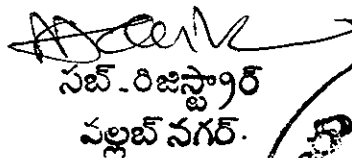 సబ్-రిజిస్ట్రార్
వల్లబ్ నగర్.